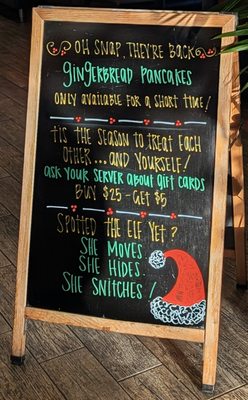 OH SNAP, THEY'RE BACK
GINGERBREAD PANCAKES
ONLY AVAILABLE FOR A SHORT TIME!
TIS THE SEASON TO TREAT EACH
OTHER...AND YOURSELF!
ASK YOUR SERVER ABOUT GIFT CARDS
BUY $25 - GET $5
SPOTTED THE ELF YET?
SHE MOVES
SHE HIDES
SHE SNITCHES!